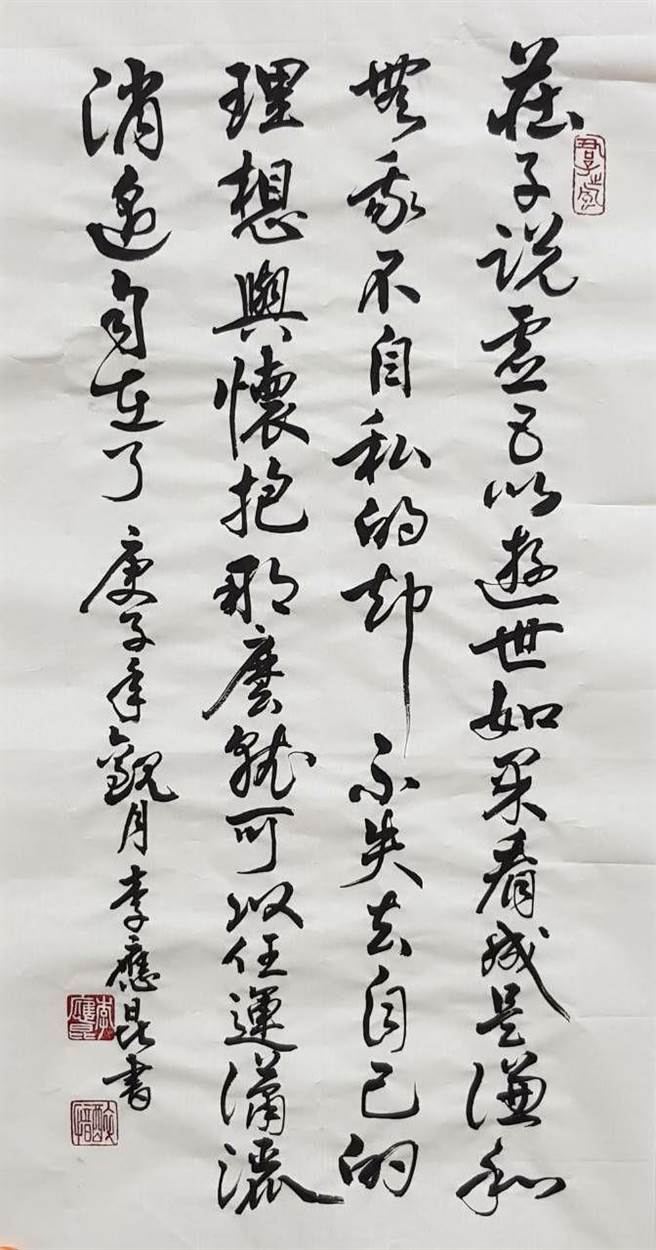 莊子说虚己以遊世如果看成是謙和
無我不自私的却不失去自己的
理想與懷抱那麼就可以任運瀟灑
消遙自在了 庚子年觀月李應昆書
李應昆